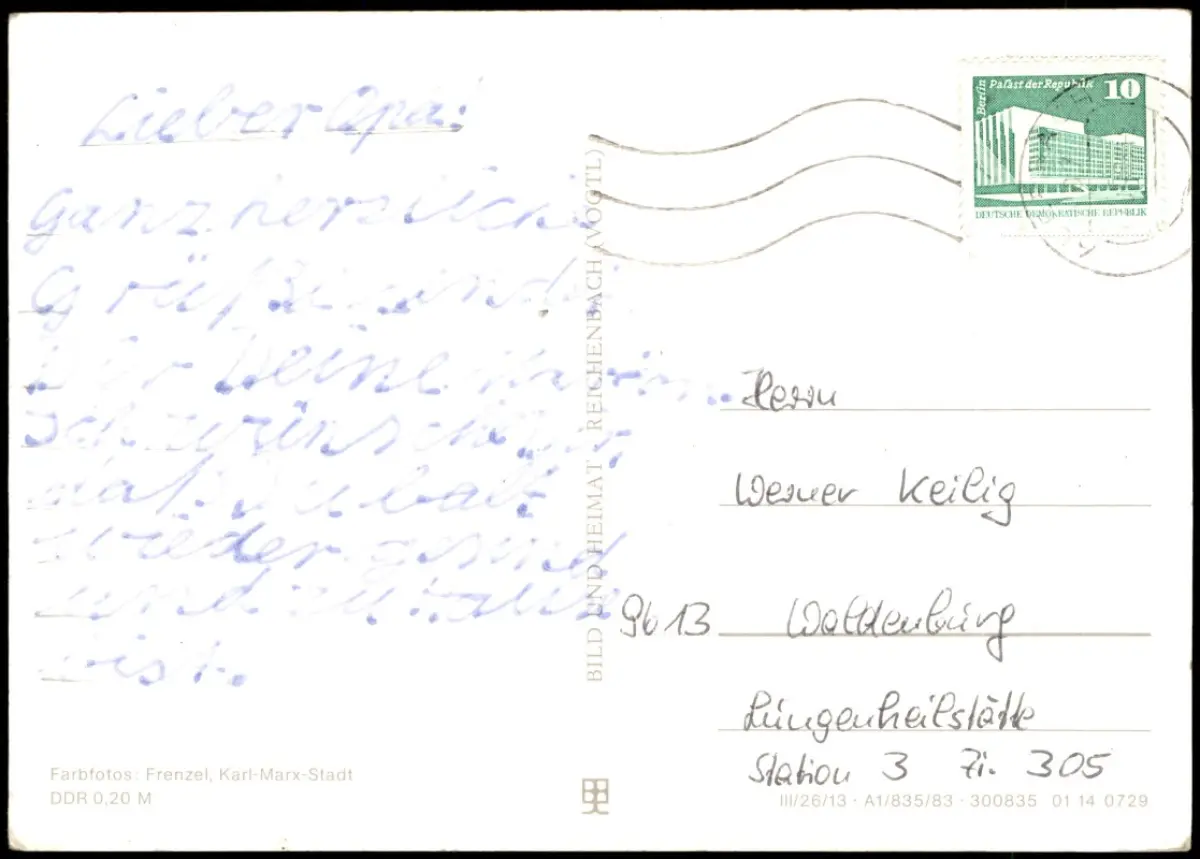 Lieber Opa!
Ganz herzliche
Grüße
Dir Deine
Ich wünsche Dir,
daß Du bald
wieder gesund
und zu Hause
bist.
BILD UND HEIMAT REICHENBACH (VOGTL)
Farbfotos: Frenzel, Karl-Marx-Stadt
DDR 0,20 M
Berlin
Palast der Republik 10
DEUTSCHE DEMOKRATISCHE REPUBLIK
Herrn
Werner Keilig
9613 Waldenburg
Lungenheilstätte
Station 3 Zi. 305
III/26/13 · A1/835/83 · 300835 01 14 0729